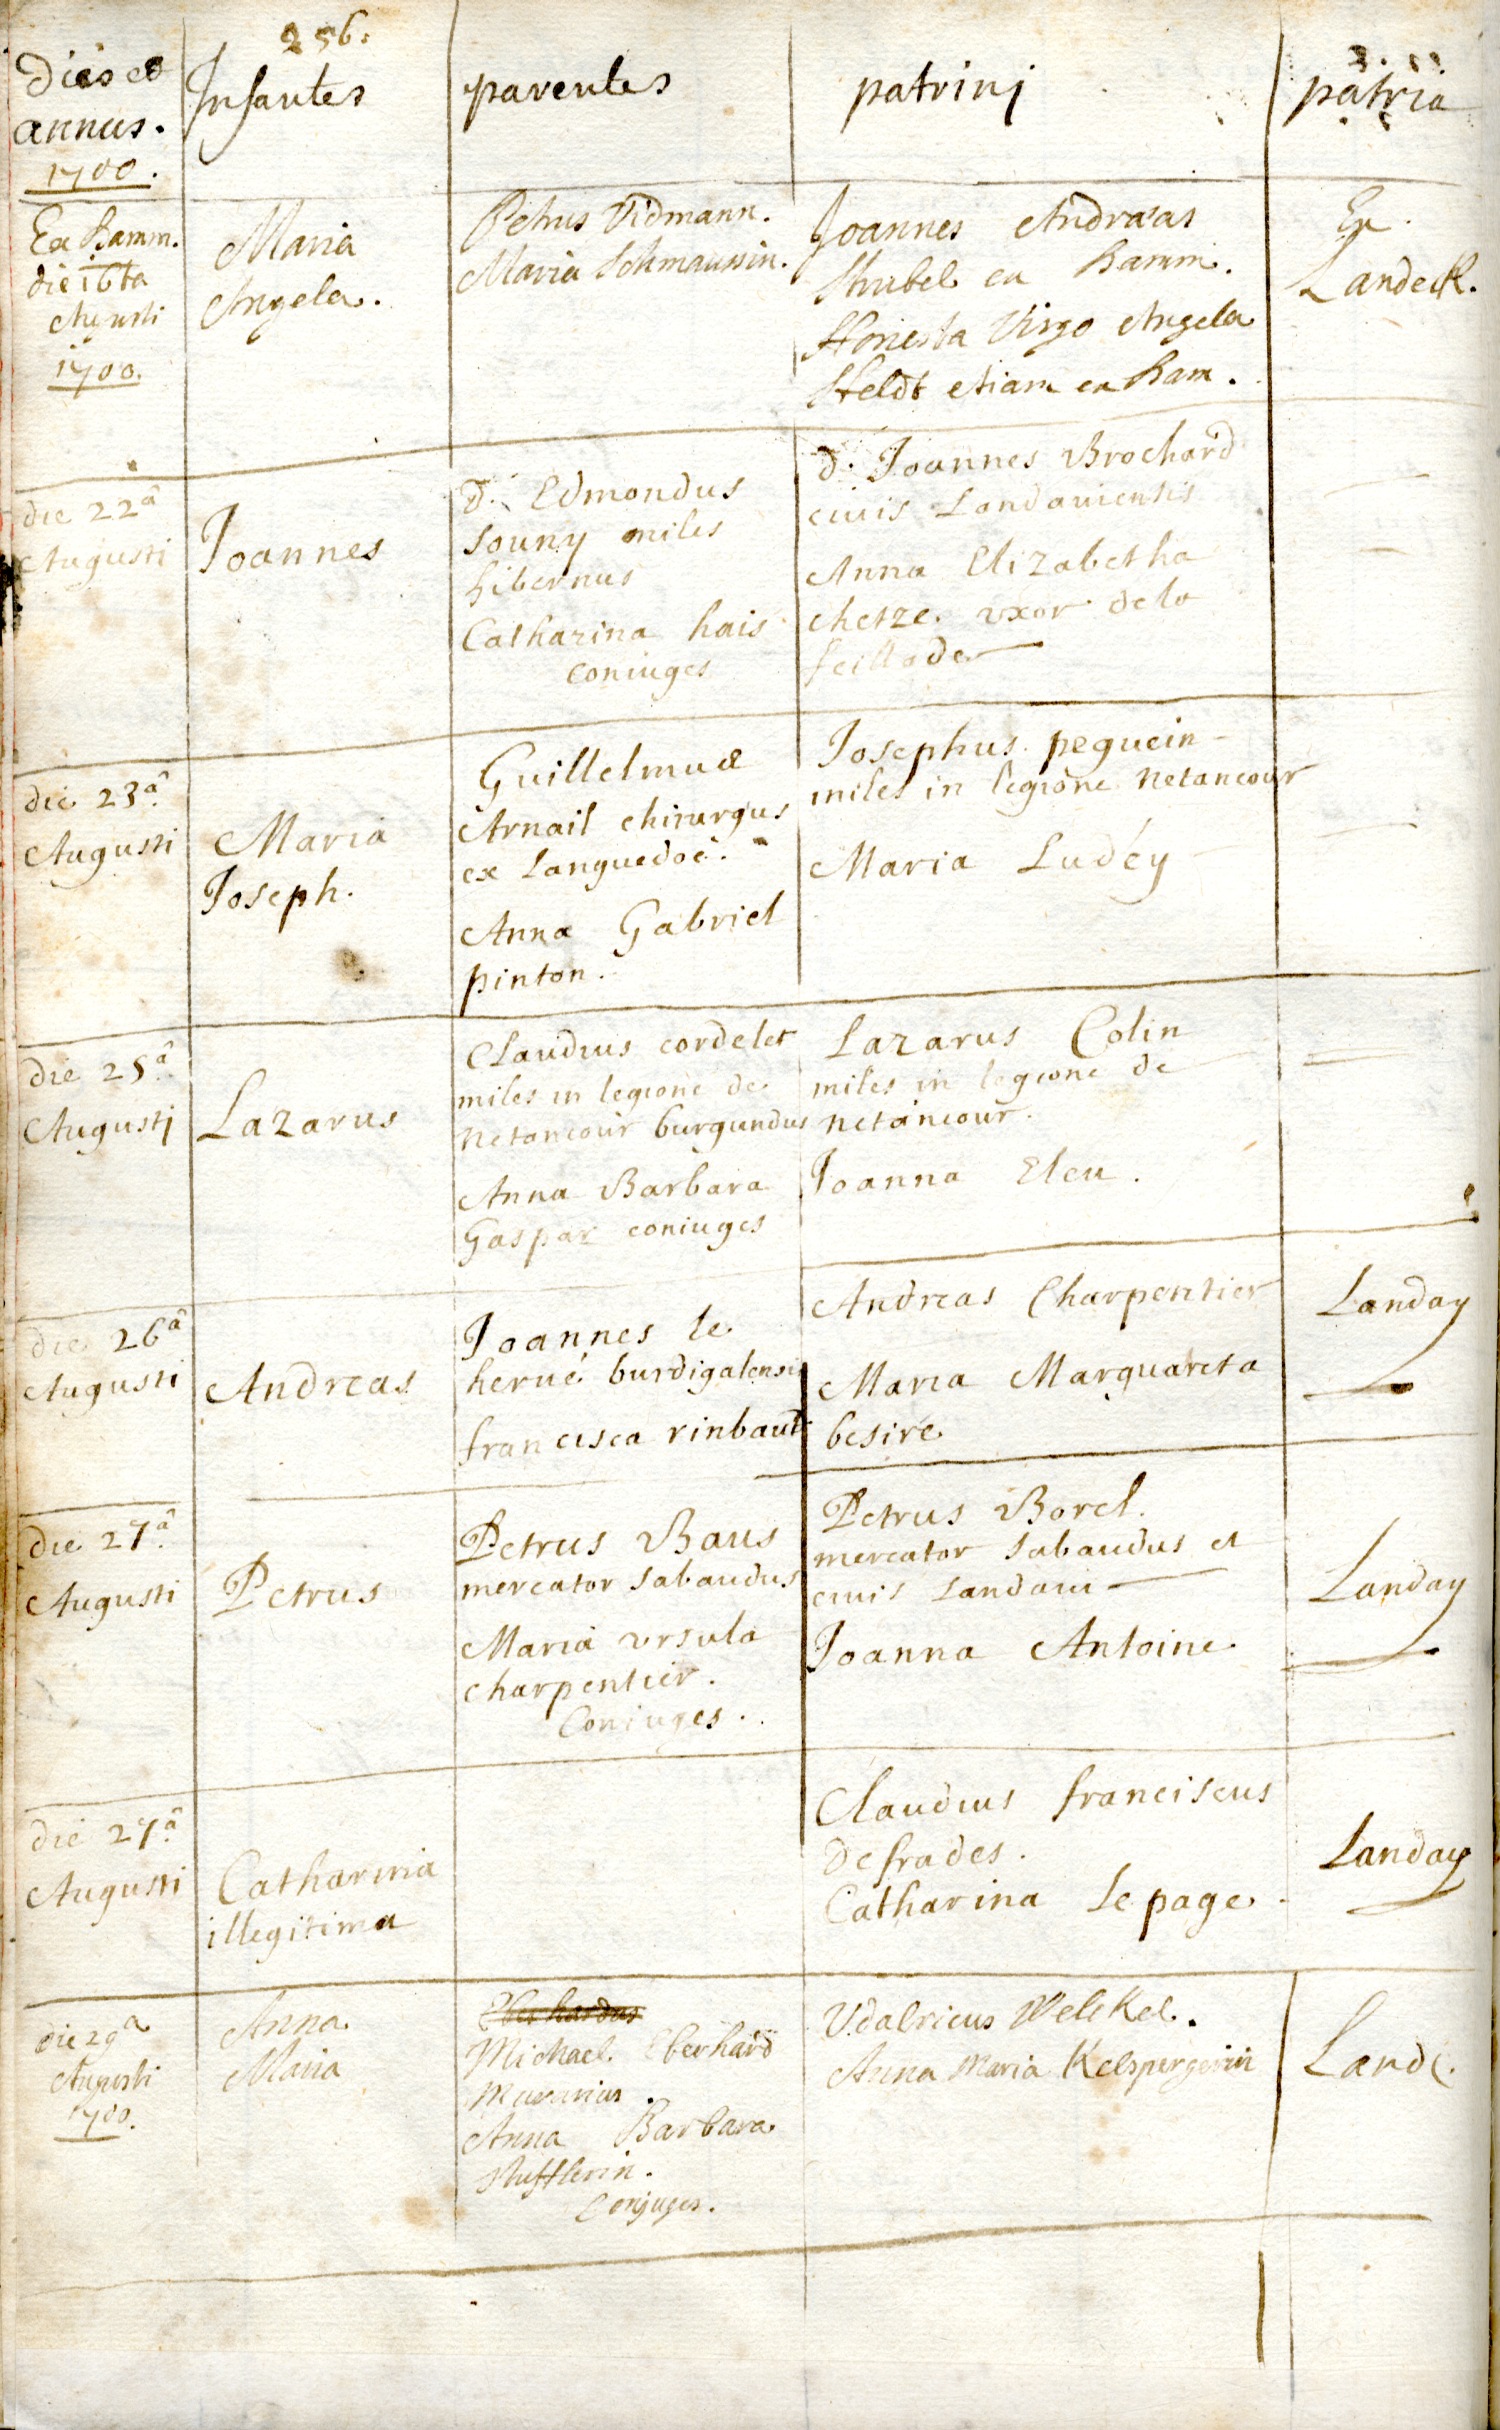 256.
dies et
annus.
1700.
Infantes
parentes
patrinj
patria
Ex Ramm.
die 16ta
Augusti
1700.
Maria
Angela.
Petrus Vidmann.
Maria Schmaussin.
Joannes Andraeas
Strubel ex Ramm.
Honesta Virgo Angela
Heldt etiam ex Ram.
Ex
Landeck.
die 22â
Augusti
Joannes
d. Edmondus
Souny miles
hibernus
Catharina hais
coniuges
d. Joannes Brochard
ciuis Landauiensis
Anna Elizabetha
chetze. uxor dela
feillade
die 23â.
Augusti
Maria
Joseph.
Guillelmus
Arnail chirurgus
ex Languedoc.
Anna Gabriel
pinton.
Josephus peguein
miles in legione Netancour
Maria Ludéy
die 25â.
Augustj
Lazarus
Claudius cordelet
miles in legione de
Netancour burgundus
Anna Barbara
Gaspar coniuges
Lazarus Colin
miles in legione de
netancour.
Joanna Eleu.
die 26â
Augusti
Andreas
Joannes le
herué burdigalensis
francisca rinbault
Andreas Charpentier
Maria Marquareta
besire
Landay
die 27â.
Augusti
Petrus
Petrus Baus
mercator Sabaudus
Maria ursula
charpentier.
Coniuges.
Petrus Borel.
mercator Sabaudus et
ciuis Landaui
Joanna Antoine
Landay
die 27â.
Augusti
Catharina
illegitima
Claudius franciscus
Defrades.
Catharina Lepage
Landay
die 29a
Augusti
1700.
Anna
Maria
Eberhardus
Michael Eberhard
Murarius.
Anna Barbara
Conjuges.
Udalricus Welckel.
Anna Maria Kelspurgerin
Land.